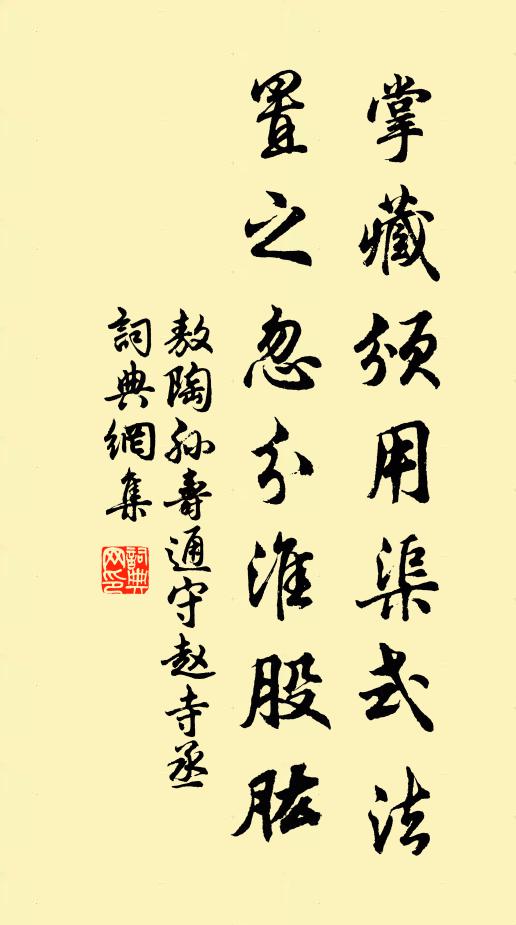 掌藏頒用渠式法
置之忽分淮股肱
敖陶孙壽通守赵寺丞
詞典網集
詞典网印